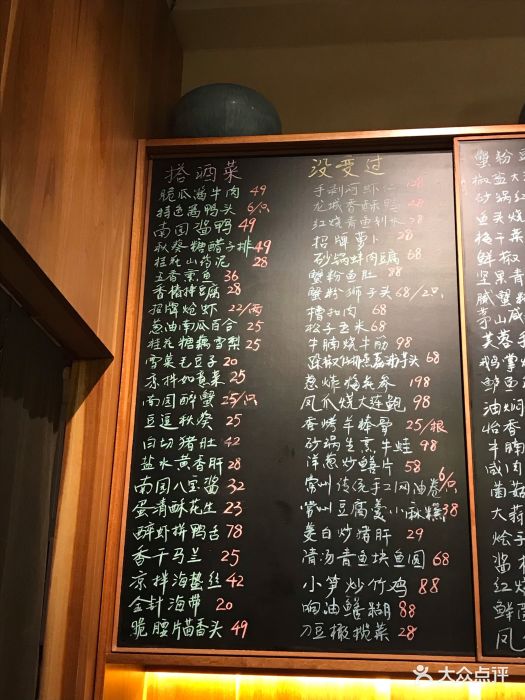 搭酒菜
脆瓜酱牛肉 49
特色酱鸭头 6/只
南国酱鸭 49
秋葵糖醋子排 49
桂花山药泥 28
五香熏鱼 36
香椿拌豆腐 28
招牌炝虾 22/两
葱油南瓜百合 25
桂花糖藕雪梨 25
雪菜毛豆子 20
香拌如意菜 25
南国醉蟹 25/只
豆逗秋葵 25
白切猪肚 42
盐水黄香肝 28
南国八宝酱 32
云清酥花生 23
醉虾拼鸭舌 78
香干马兰 25
凉拌海蜇丝 42
金针海带 20
脆腰片茴香头 49
没变过
手剥河虾仁
龙城香酥鸭 28
红烧青鱼划水
招牌萝卜 28
砂锅蚌肉豆腐 68
蟹粉鱼肚 88
蟹粉狮子头 68/2只
糟扣肉 68
松子玉米 68
牛腩烧牛筋 98
68
葱烧海参 198
凤爪烧大连鲍 98
香烤羊棒骨 25/根
砂锅生烹牛蛙 98
洋葱炒鳝片 58
常州传统手工网油卷 6/只
常州豆腐羹+小麻糕 38
姜白炒猪肝 29
清汤青鱼块鱼圆 68
小笋炒竹鸡 88
响油鳝糊 88
刀豆橄榄菜 28
蟹粉
椒盐大
砂锅红
鱼头烧
梅干菜
鲜椒
坚果青
腻蟹
茅山咸
芙蓉手
鹅掌
鲜鱼
油焖
怡香
牛腩
咸肉
菌菇
大蒜
烩子
酱
红烧
大众点评